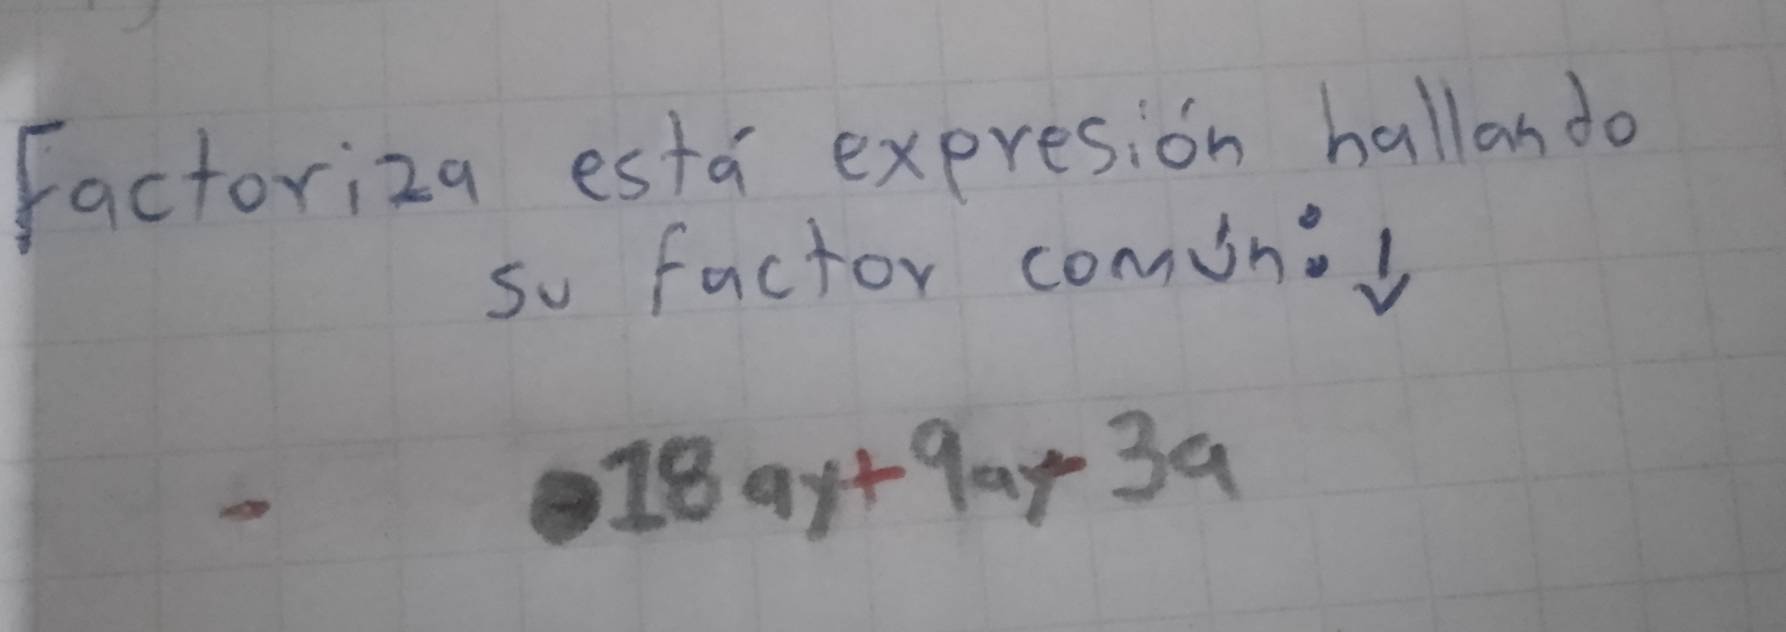 Factoriza está expresión hallando
su factor común: ↓
- 18ay+9ay-3a